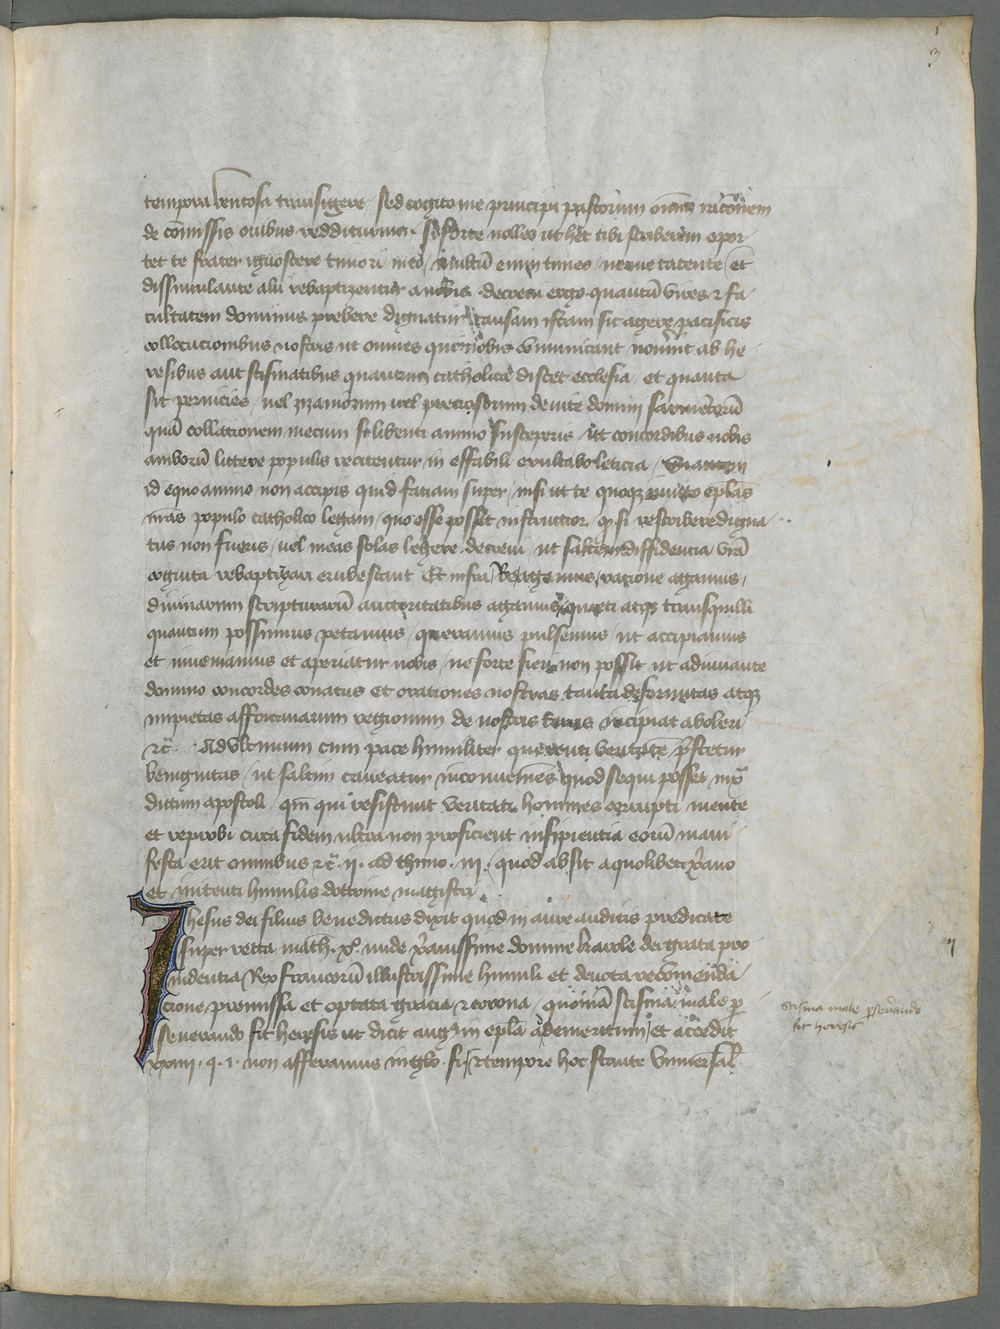 3
tempora ventosa transigere. sed cogito me principi pastorum omnium racionem
de comissis ovibus redditurum. Si forte nolles ut hec tibi scriberem opor
tet te frater ignoscere timori meo, multum enim timeo, ne me tacente et
dissimulante alii rebaptizentur a nobis. decrevi ergo quantum vires et fa
cultatem dominus prebere dignatur causam istam sic agere pacificis
collocutionibus nostris ut omnes qui nobis comunicant noverint ab he
resibus aut scismatibus quantum catholica distet ecclesia, et quanta
sit pernicies, vel zizaniorum vel preciosorum de vite domini sarmentorum
quam collationem mecum si libenti animo susceperis, ut concordibus nobis
amborum littere populis recitentur, in effabili exultabo leticia, Si autem
id equo animo non accipis quid faciam frater, nisi ut te quoque invito eplas
nras populo catholico legam, quo esse possit instructior, q si rescribere digna
tus non fueris, vel meas solas legere decrevi, ut saltem diffidencia vra
cognita rebaptizari erubescant Et infra, Re agamus, racione agamus,
divinarum scripturarum auctoritatibus agamus, quieti atque tranquilli
quantum possumus petamus, queramus pulsemus, ut accipiamus
et inveniamus et aperiatur nobis, ne forte fieri non possit ut adiuvante
domino concordes conatus et orationes nostras tanta deformitas atque
impietas affricanarum regionum de nostris terris incipiat aboleri
etc. Ad Ultimum cum pace humiliter querenti veritatem prestetur
benignitas, ut saltim caveatur inconveniens quod sequi posset iuxta
dictum apostoli, qm qui resistunt veritati, homines corrupti mente
et reprobi circa fidem ultra non proficient insipientia eorum mani
festa erit omnibus etc. ii. ad thimo. iii. quod absit a quolibet xpiano
et imitenti humilis doctrine magistri
Ihesus dei filius benedictus dixit quod in aure auditis predicate
super tecta math. x. unde xpianissime domine karole dei grata pro
videntia Rex francorum illustrissime humili et devota recomenda
cione premissa et optata gracia et corona, quoniam scisma male per
severando fit heresis ut dicit aug in epla ad emeritum, et accedit
xxiiii. q. i. non afferamus in glo. si, et tempore hoc stante Universal
scisma male perseverando
fit heresis